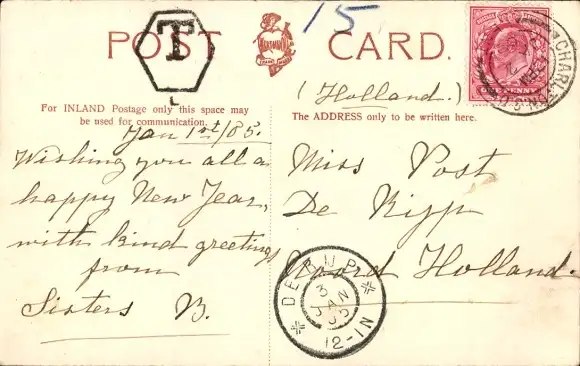 POST CARD.
T
L
15
ONE PENNY
CHARLTON
(Holland.)
For INLAND Postage only this space may
be used for communication.
The ADDRESS only to be written here.
Jan 1st/05.
Wishing you all a
happy New Year,
with kind greetings
from
Sisters B.
Miss Post
De Rijp
Noord Holland.
DE RIJP
3
JAN
05
12-1N